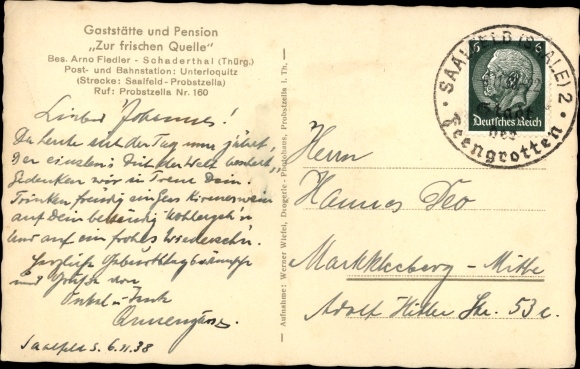 Gaststätte und Pension
„Zur frischen Quelle"
Bes. Arno Fiedler - Schaderthal (Thürg.)
Post- und Bahnstation: Unterloquitz
(Strecke: Saalfeld-Probstzella)
Ruf: Probstzella Nr. 160
Lieber Johannes!
Da heute sich der Tag nun jährt,
Der einstens Dich der Welt beschert,
Gedenken wir in Treue Dein.
Trinken freudig ein Glas Kirmeswein
auf Dein beständig Wohlergeh'n
Und auf ein frohes Wiederseh'n.
Herzliche Geburtstagswünsche
und Grüße von
Onkel u. Tante
Saalfeld S. 6.11.38
Aufnahme: Werner Wiefel, Drogerie-Photohaus, Probstzella i. Th.
SAALFELD (SAALE) 2
Feengrotten
6 6
Deutsches Reich
Herrn
Hannes Deo
Markkleeberg - Mitte
Adolf Hitler Str. 53 c.